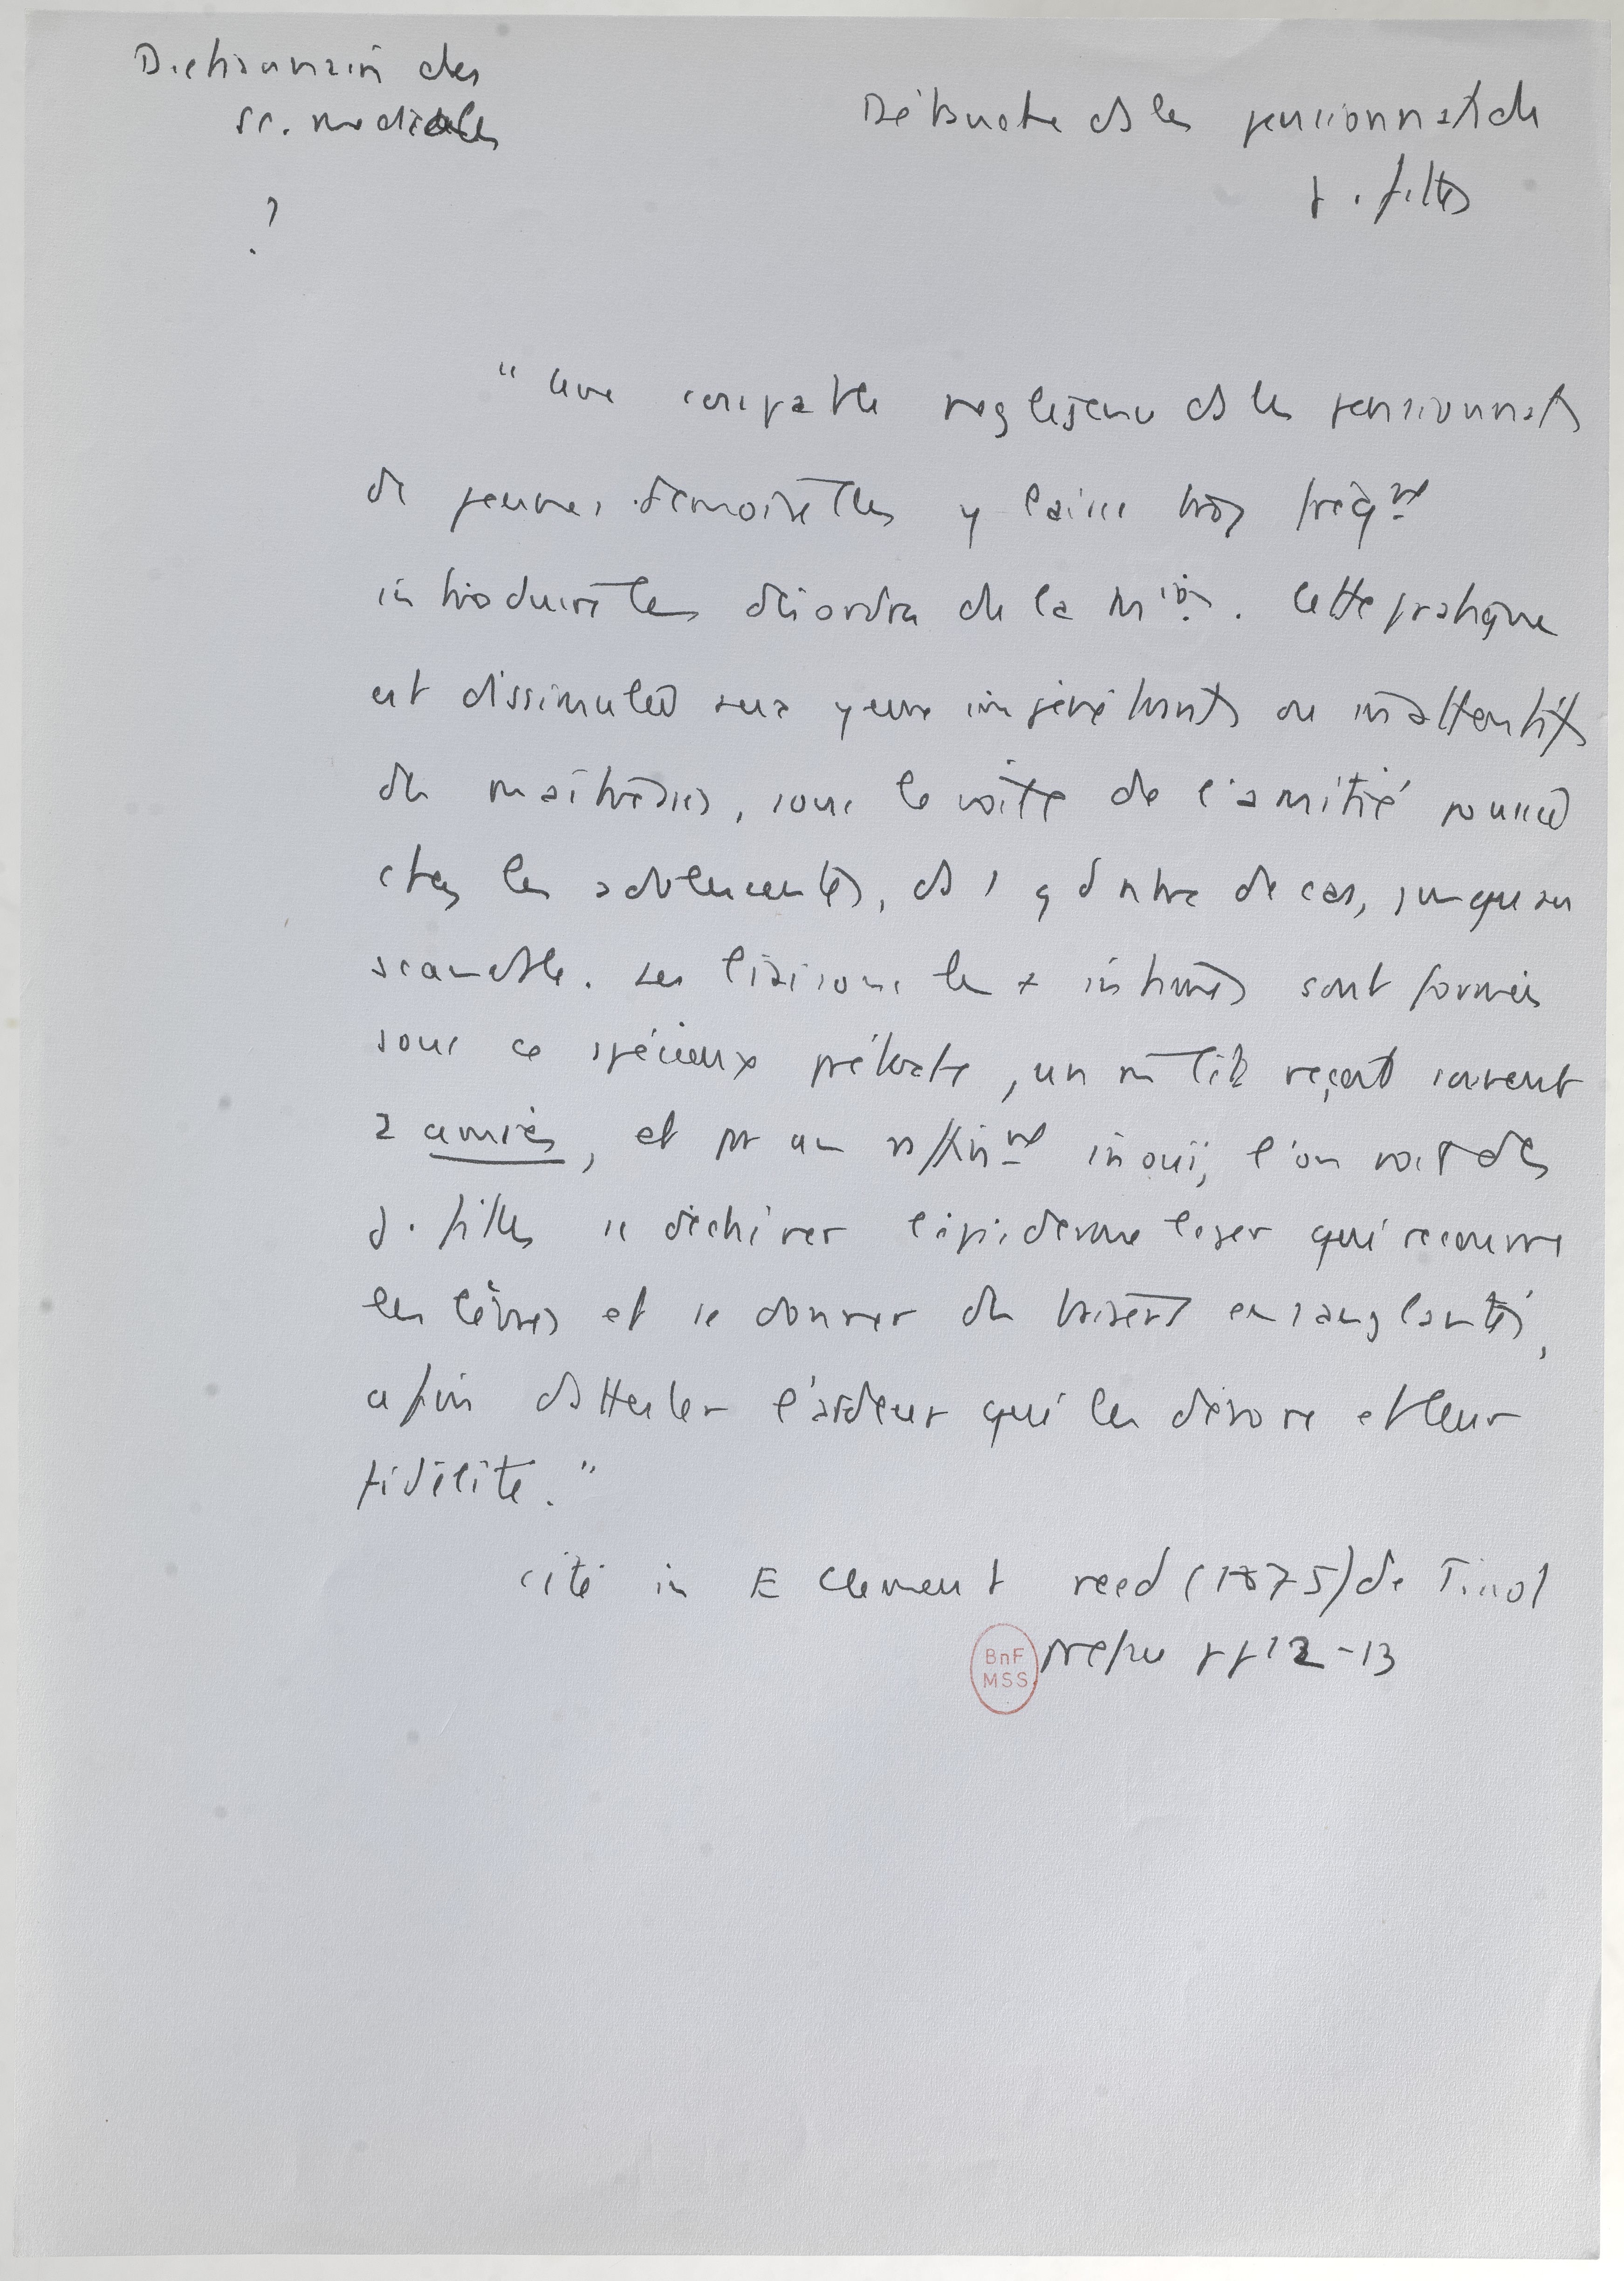 Dictionnaire des
sc. medicales
?
Débauche ds les pensionnats de
j. filles
"Une coupable negligence ds les pensionnats
de jeunes demoiselles y laisse trop fréqnt
introduire les désordres de la Mion. Cette pratique
est dissimulée aux yeux inpénétrants ou inattentifs
des maîtresses, sous le voile de l'amitié poussée
chez les adolescentes, ds 1 q d nbre de cas, jusqu'au
scandale. Les liaisons les + intimes sont formées
sous ce spécieux prétexte, un m lit reçoit souvent
2 amies, et pr un raffinnt inouï, l'on voit des
j. filles se déchirer l'épiderme leger qui recouvre
les lèvres et se donner des baisers ensanglantés,
afin d'attester l'ardeur qui les dévore et leur
fidélité."
cité in E Clement reed (1875) de Tissot
BnF
MSS
prepu pp 12-13